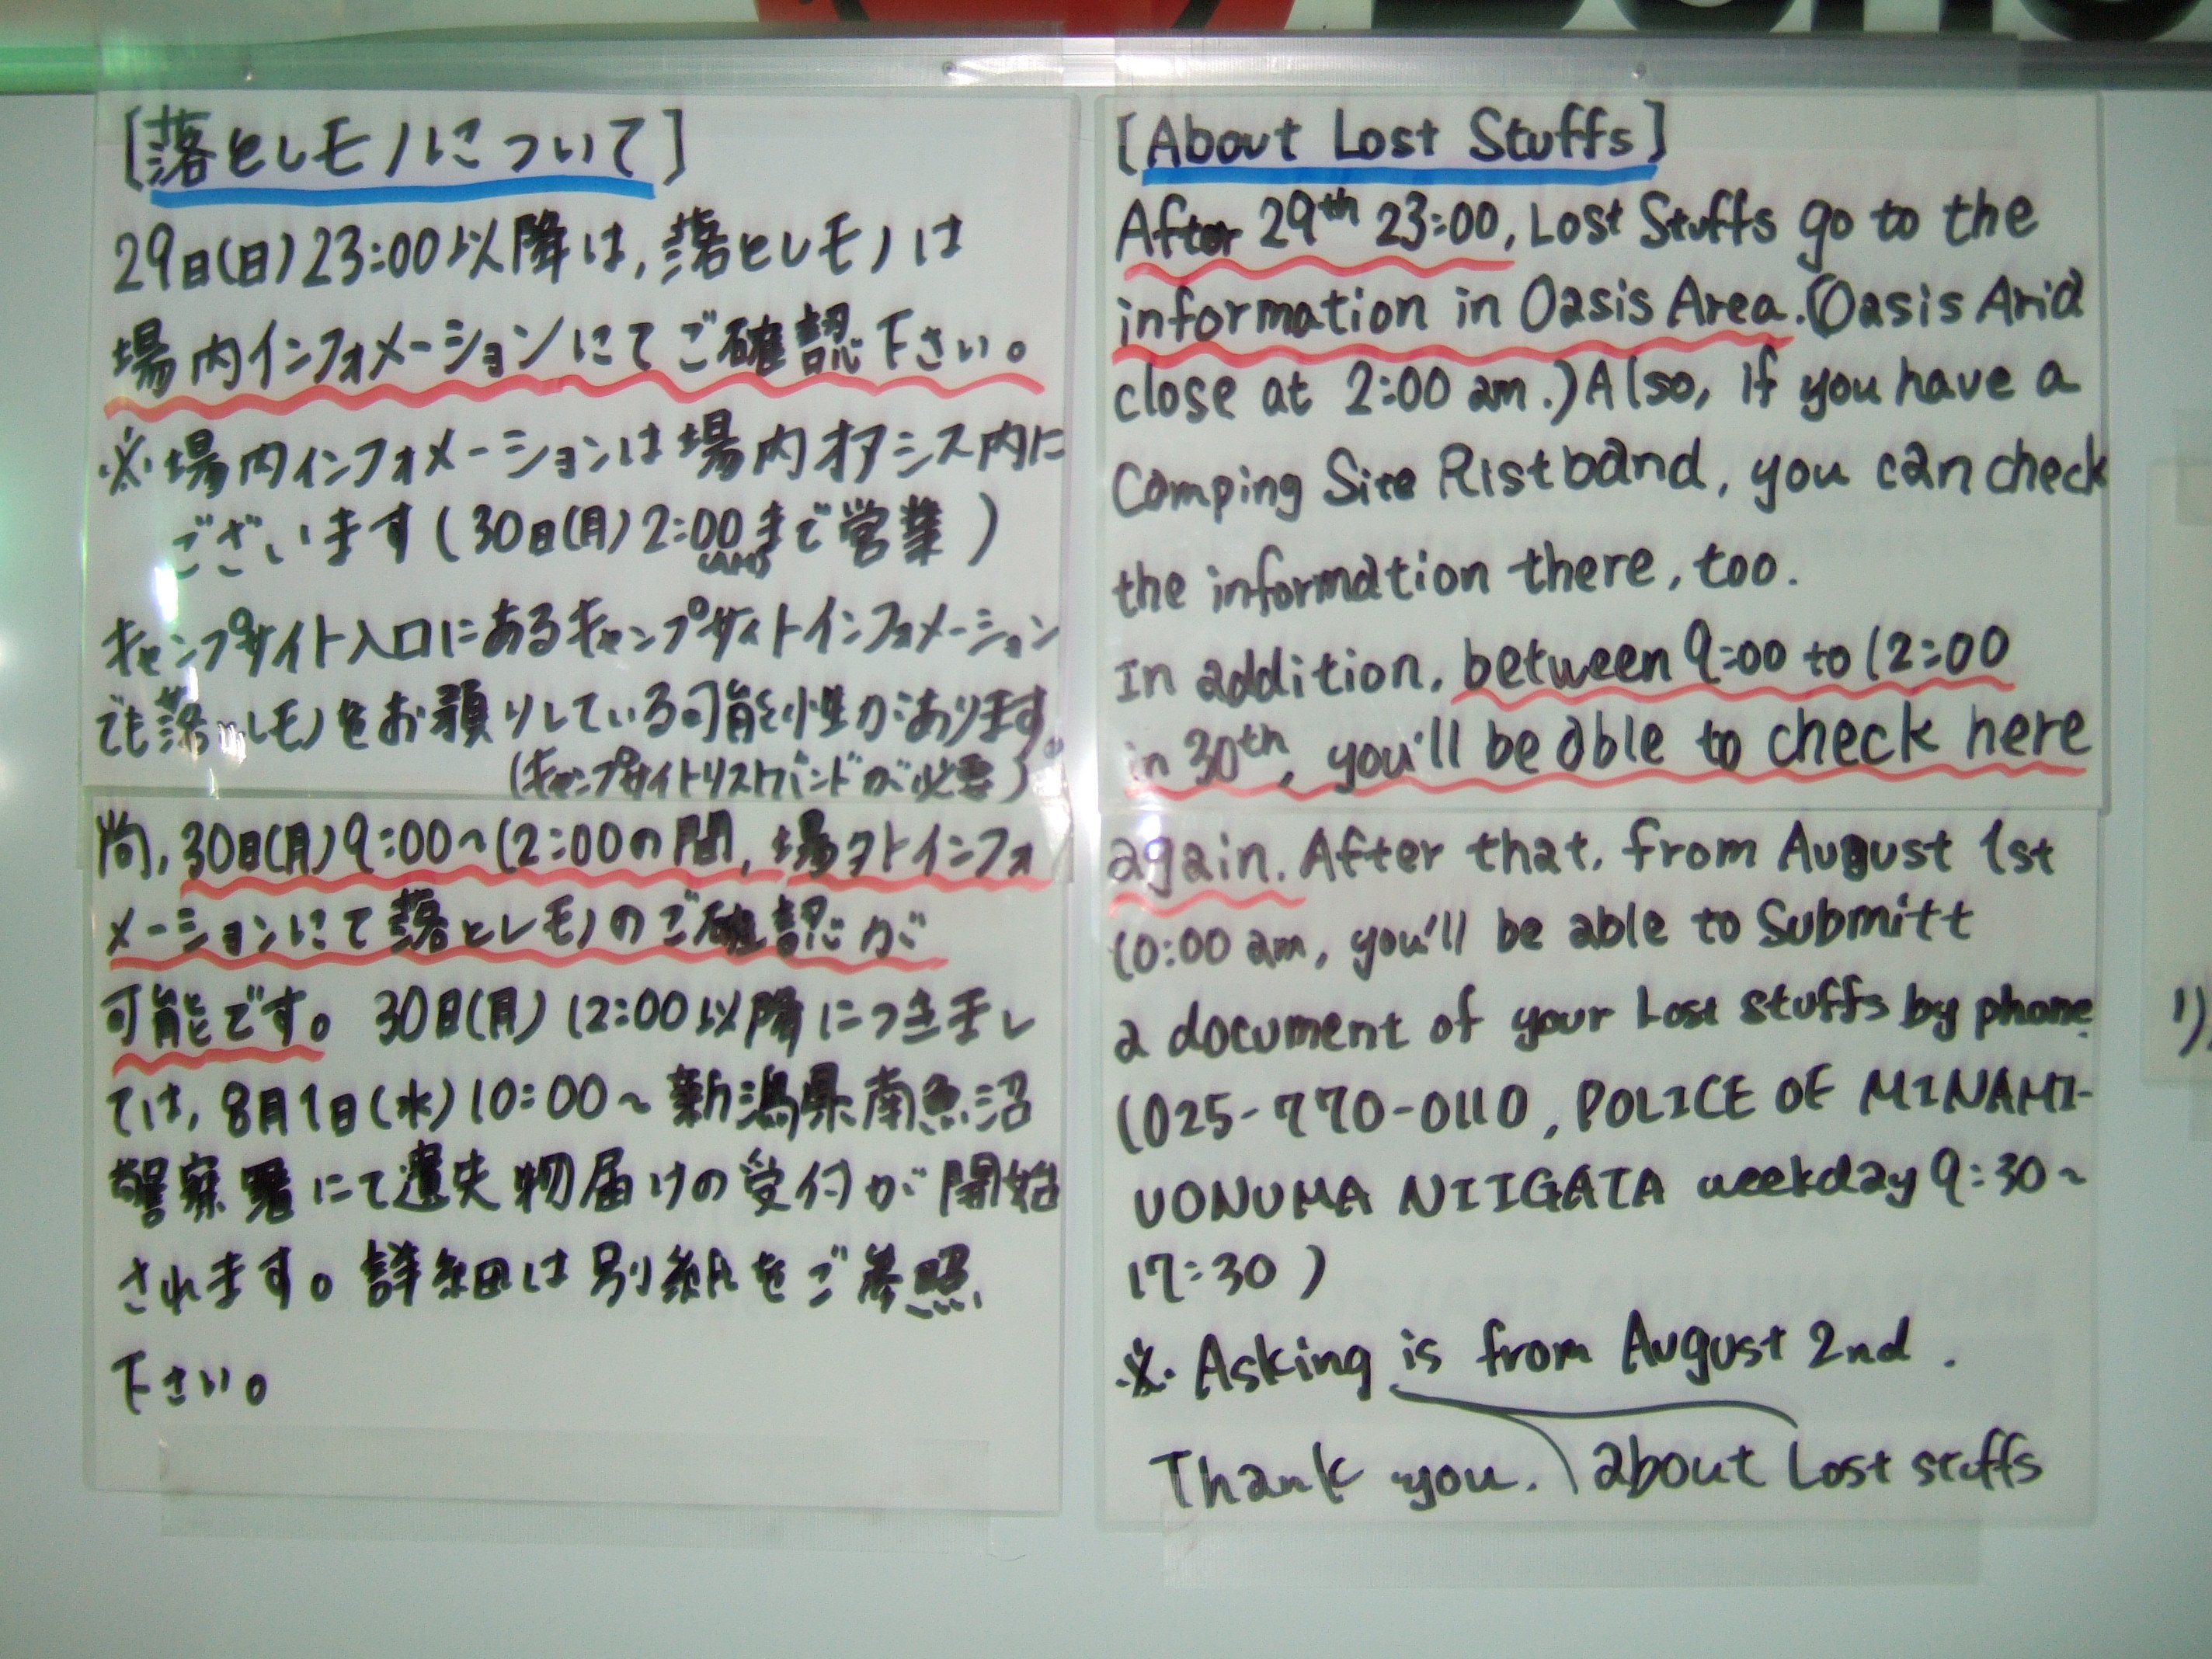 [落としモノについて]
29日(日)23:00以降は、落としモノは
場内インフォメーションにてご確認下さい。
※場内インフォメーションは場内オアシス内に
ございます(30日(月)2:00まで営業)
(AM)
キャンプサイト入口にあるキャンプサイトインフォメーション
でも落としモノをお預りしている可能性があります。
(キャンプサイトリストバンドが必要)
尚、30日(月)9:00~12:00の間、場外インフォ
メーションにて落としモノのご確認が
可能です。30日(月)12:00以降につきまし
ては、8月1日(水)10:00~新潟県南魚沼
警察署にて遺失物届けの受付が開始
されます。詳細は別紙をご参照
下さい。
[About Lost Stuffs]
After 29th 23:00, Lost Stuffs go to the
information in Oasis Area. (Oasis Arid
close at 2:00 am.) Also, if you have a
Camping Site Ristband, you can check
the information there, too.
In addition, between 9:00 to 12:00
in 30th, you'll be able to check here
again. After that, from August 1st
10:00 am, you'll be able to Submitt
a document of your Lost stuffs by phone.
(025-770-0110, POLICE OF MINAMI-
UONUMA NIIGATA weekday 9:30~
17:30)
※Asking is from August 2nd.
about Lost stuffs
Thank you.